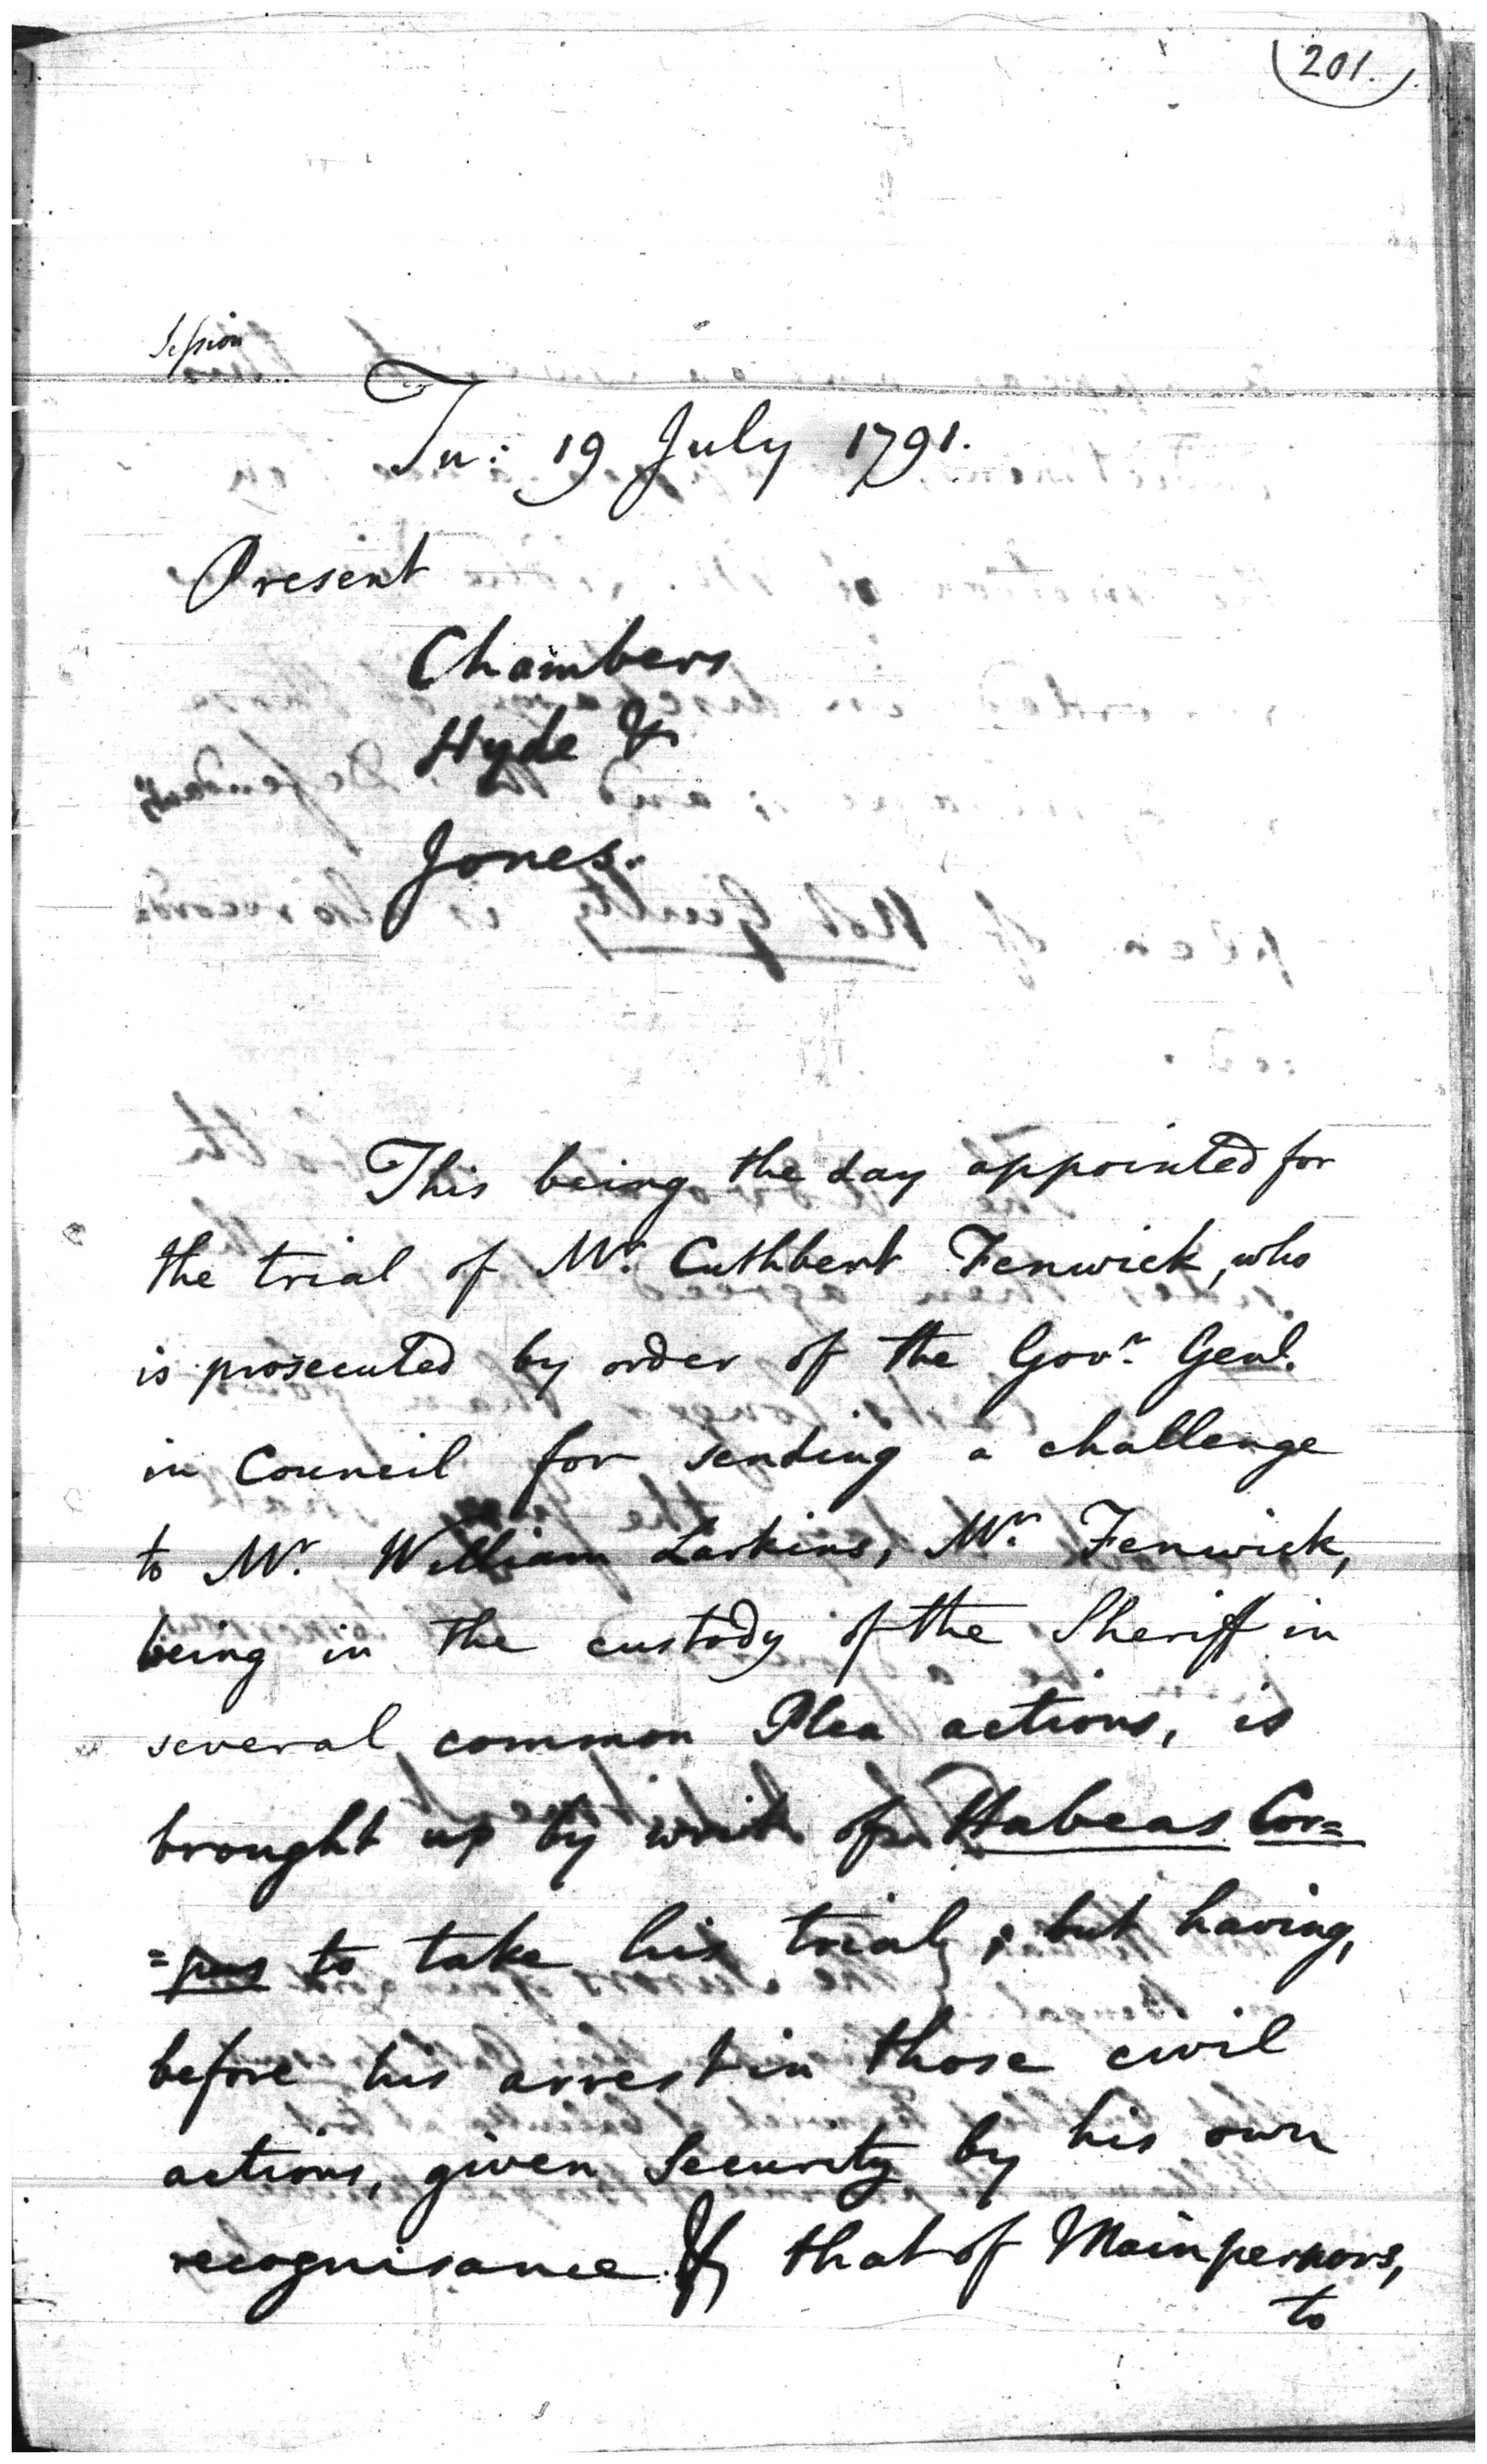 201.
Session
Tu: 19 July 1791.
Present
Chambers
Hyde &
Jones.
This being the day appointed for
the trial of Mr. Cuthbert Fenwick, who
is prosecuted by order of the Govr. Genl.
in Council for sending a challenge
to Mr. William Larkins, Mr. Fenwick,
being in the custody of the Sheriff in
several common Plea actions, is
brought up by writ of Habeas Cor=
=pus to take his trial; but having,
before his arrest in those civil
actions, given Security by his own
recognisance & that of Mainpernors,
to